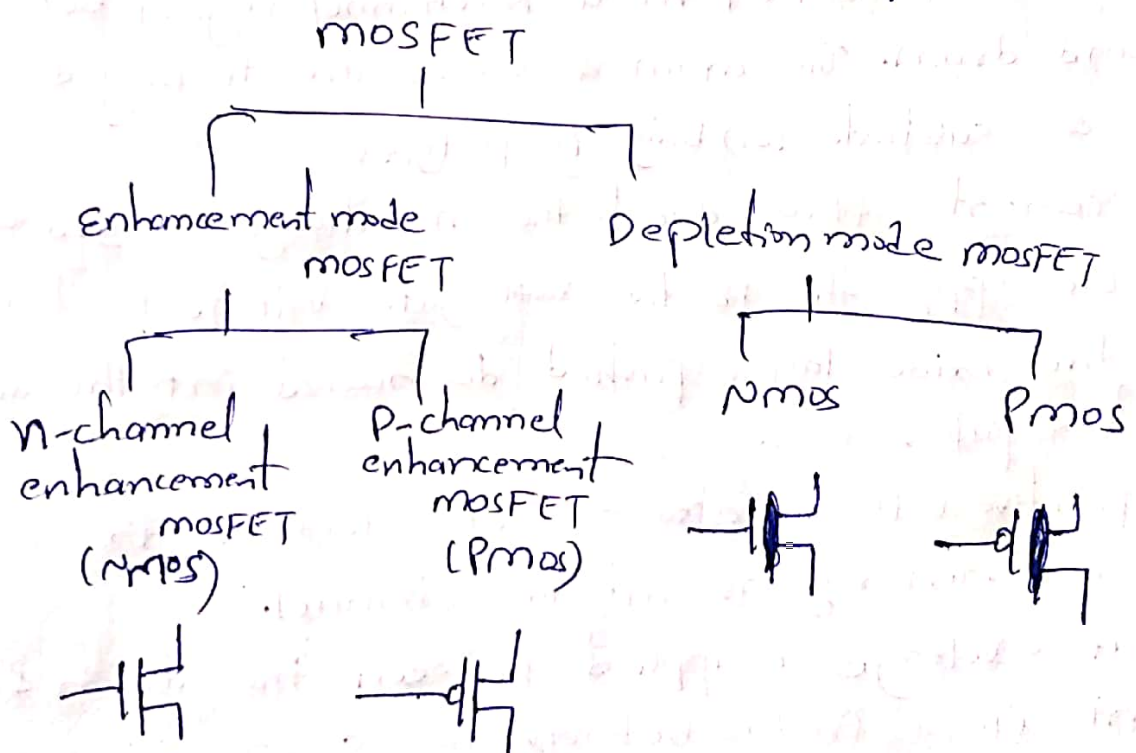 MOSFET
Enhancement mode
MOSFET
Depletion mode MOSFET
n-channel
enhancement
MOSFET
(NMOS)
P-channel
enhancement
MOSFET
(PMOS)
NMOS
PMOS